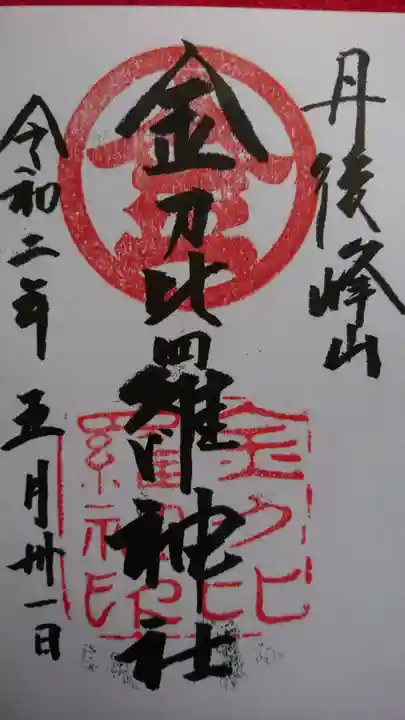 丹後峰山
金刀比羅神社
令和二年五月卅一日
金
金刀比
羅神社
印